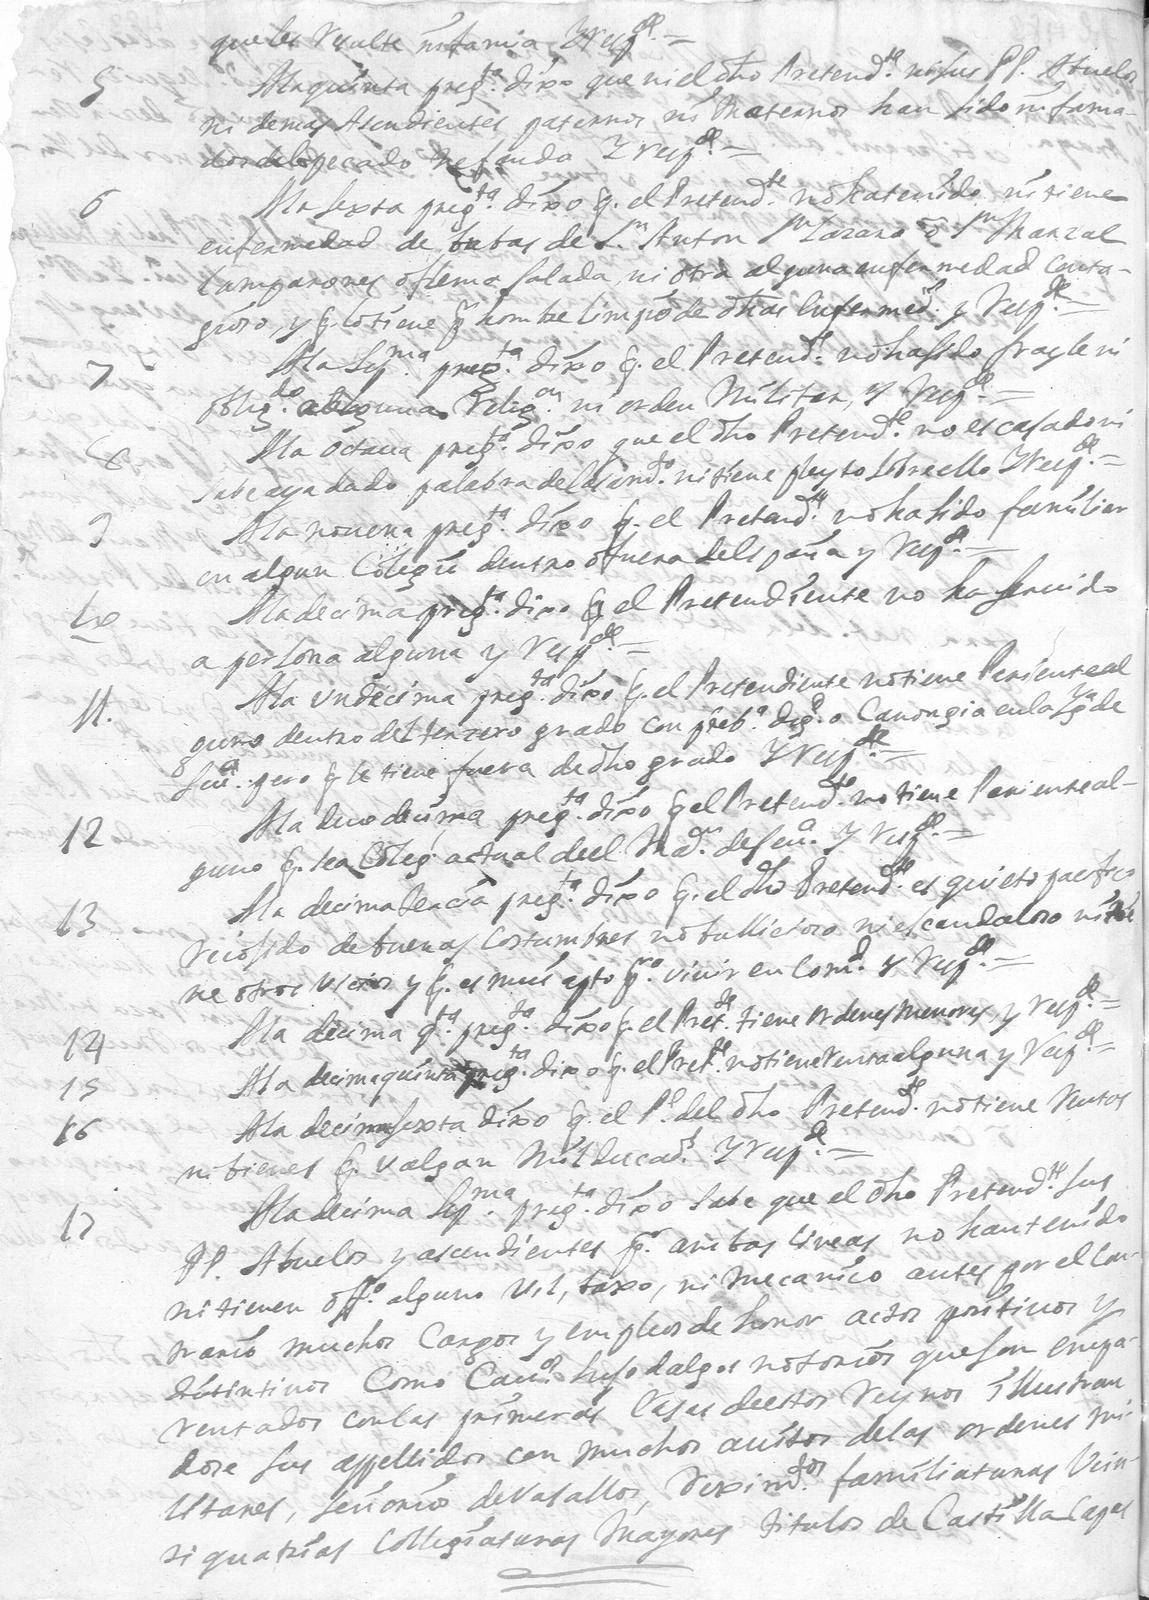 que les resulte infamia Y resp.de =
5 A la quinta preg.ta dixo que ni el dho Pretend.te ni sus PP. Abuelos
ni demas Asendientes paternos ni Maternos han sido infama-
dos del pecado nefando Y resp.de =
6 A la sexta preg.ta dixo q. el Pretend.te no ha tenido ni tiene
enfermedad de bubas de S.n Anton S.n Lazaro o S.n Marzal
Lamparones o flema salada, ni otra alguna enfermedad conta-
giosa, y q. lo tiene p.r hombre limpio de dhas Enfermed.s y Resp.de =
7 A la Sep.ma preg.ta dixo q. el Pretend.te no ha sido frayle ni
oblig.do a alguna Relig.on ni orden Militar, y Resp.de =
8 A la octaua preg.ta dixo que el dho Pretend.te no es casado ni
sabe aya dado palabra de Casam.to ni tiene pleyto sobre ello Y resp.de =
9 A la nouena preg.ta dixo q. el Pretend.te no ha sido familiar
en algun Colegio dentro o fuera de España y Resp.de =
10 A la decima preg.ta dixo q. el Pretendiente no ha seruido
a persona alguna y Resp.de =
11. A la undecima preg.ta dixo q. el Pretendiente no tiene Pariente al
guno dentro del terzero grado con preb.a dig.d o Canongia en la Yg.a de
Seu.a pero q. le tiene fuera de dho grado Y Resp.de =
12 A la duodecima preg.ta dixo q. el Pretend.te no tiene Pariente al-
guno q. sea Coleg.l actual de el Ma.or de Seu.a Y Resp.de =
13 A la decima tercia preg.ta dixo q. el dho Pretend.te es quieto pacifico
recojido de buenas Costumbres no bullicioso ni escandaloso ni tie
ne otros vicios y q. es mui apto p.a vivir en Com.d Y Resp.de =
14 A la decima q.ta preg.ta dixo q. el Pret.te tiene ordenes menores, y resp.de =
15 A la decima quinta preg.ta dixo q. el Pret.te no tiene renta alguna y Resp.de =
16 A la decima sexta dixo q. el P.e del dho Pretend.te no tiene Rentas
ni bienes q. valgan Mil Ducad.s Y resp.de =
17 A la decima Sep.ma preg.ta dixo sabe que el dho Pretend.te sus
PP. Abuelos y ascendientes p.r ambas lineas no han tenido
ni tienen off.o alguno vil, baxo, ni mecanico antes por el con-
trario muchos Cargos y empleos de honor actos positiuos y
distintiuos Como Cau.os hijosdalgos notorios que son empa-
rentados con las primeras Casas de estos Reynos illustran
dose sus appellidos con muchos auitos de las ordenes mi-
litares, señorios de Vasallos, Rexim.tos familiaturas Vein-
tiquatrias Collegiaturas Mayores titulos de Castilla Casas